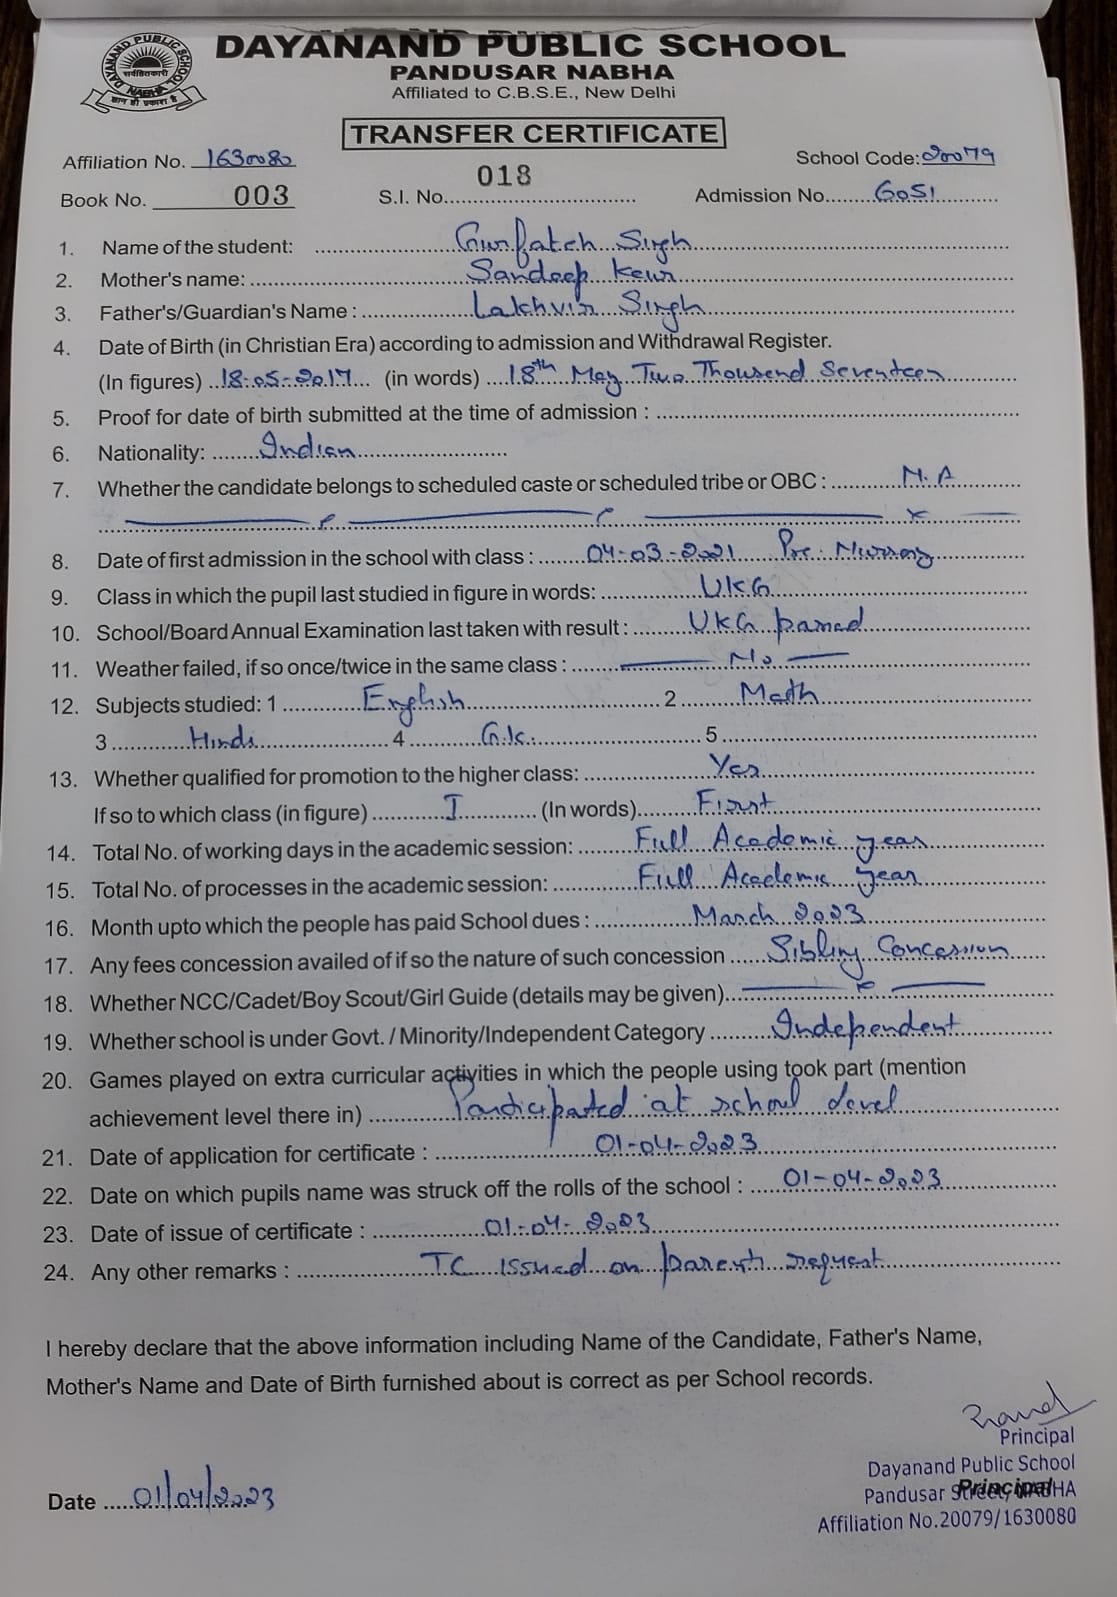 DAYANAND PUBLIC SCHOOL
PANDUSAR NABHA
Affiliated to C.B.S.E., New Delhi
DAYANAND PUBLIC SCHOOL
NABHA
TRANSFER CERTIFICATE
Affiliation No. 1630080 School Code: 20079
Book No. 003 S.I. No. 018 Admission No. 6051
1. Name of the student: Gurfateh Singh
2. Mother's name: Sandeep Keur
3. Father's/Guardian's Name : Lakhvir Singh
4. Date of Birth (in Christian Era) according to admission and Withdrawal Register.
(In figures) 18-05-2017 (in words) 18th May Two Thousend Seventeen
5. Proof for date of birth submitted at the time of admission :
6. Nationality: Indian
7. Whether the candidate belongs to scheduled caste or scheduled tribe or OBC : N.A
8. Date of first admission in the school with class : 04-03-2021 Pre. Nursery
9. Class in which the pupil last studied in figure in words: UKG
10. School/Board Annual Examination last taken with result : UKG passed
11. Weather failed, if so once/twice in the same class : No
12. Subjects studied: 1 English 2 Math
3 Hindi 4 G.k. 5
13. Whether qualified for promotion to the higher class: Yes
If so to which class (in figure) I (In words) First
14. Total No. of working days in the academic session: Full Academic year
15. Total No. of processes in the academic session: Full Academic year
16. Month upto which the people has paid School dues : March 2023
17. Any fees concession availed of if so the nature of such concession Sibling Concession
18. Whether NCC/Cadet/Boy Scout/Girl Guide (details may be given)
19. Whether school is under Govt. / Minority/Independent Category Independent
20. Games played on extra curricular activities in which the people using took part (mention
achievement level there in) Participated at school level
21. Date of application for certificate : 01-04-2023
22. Date on which pupils name was struck off the rolls of the school : 01-04-2023
23. Date of issue of certificate : 01-04-2023
24. Any other remarks : TC issued on parents request
I hereby declare that the above information including Name of the Candidate, Father's Name,
Mother's Name and Date of Birth furnished about is correct as per School records.
Principal
Dayanand Public School
Pandusar Street, NABHA
Principal
Affiliation No.20079/1630080
Date 01/04/2023